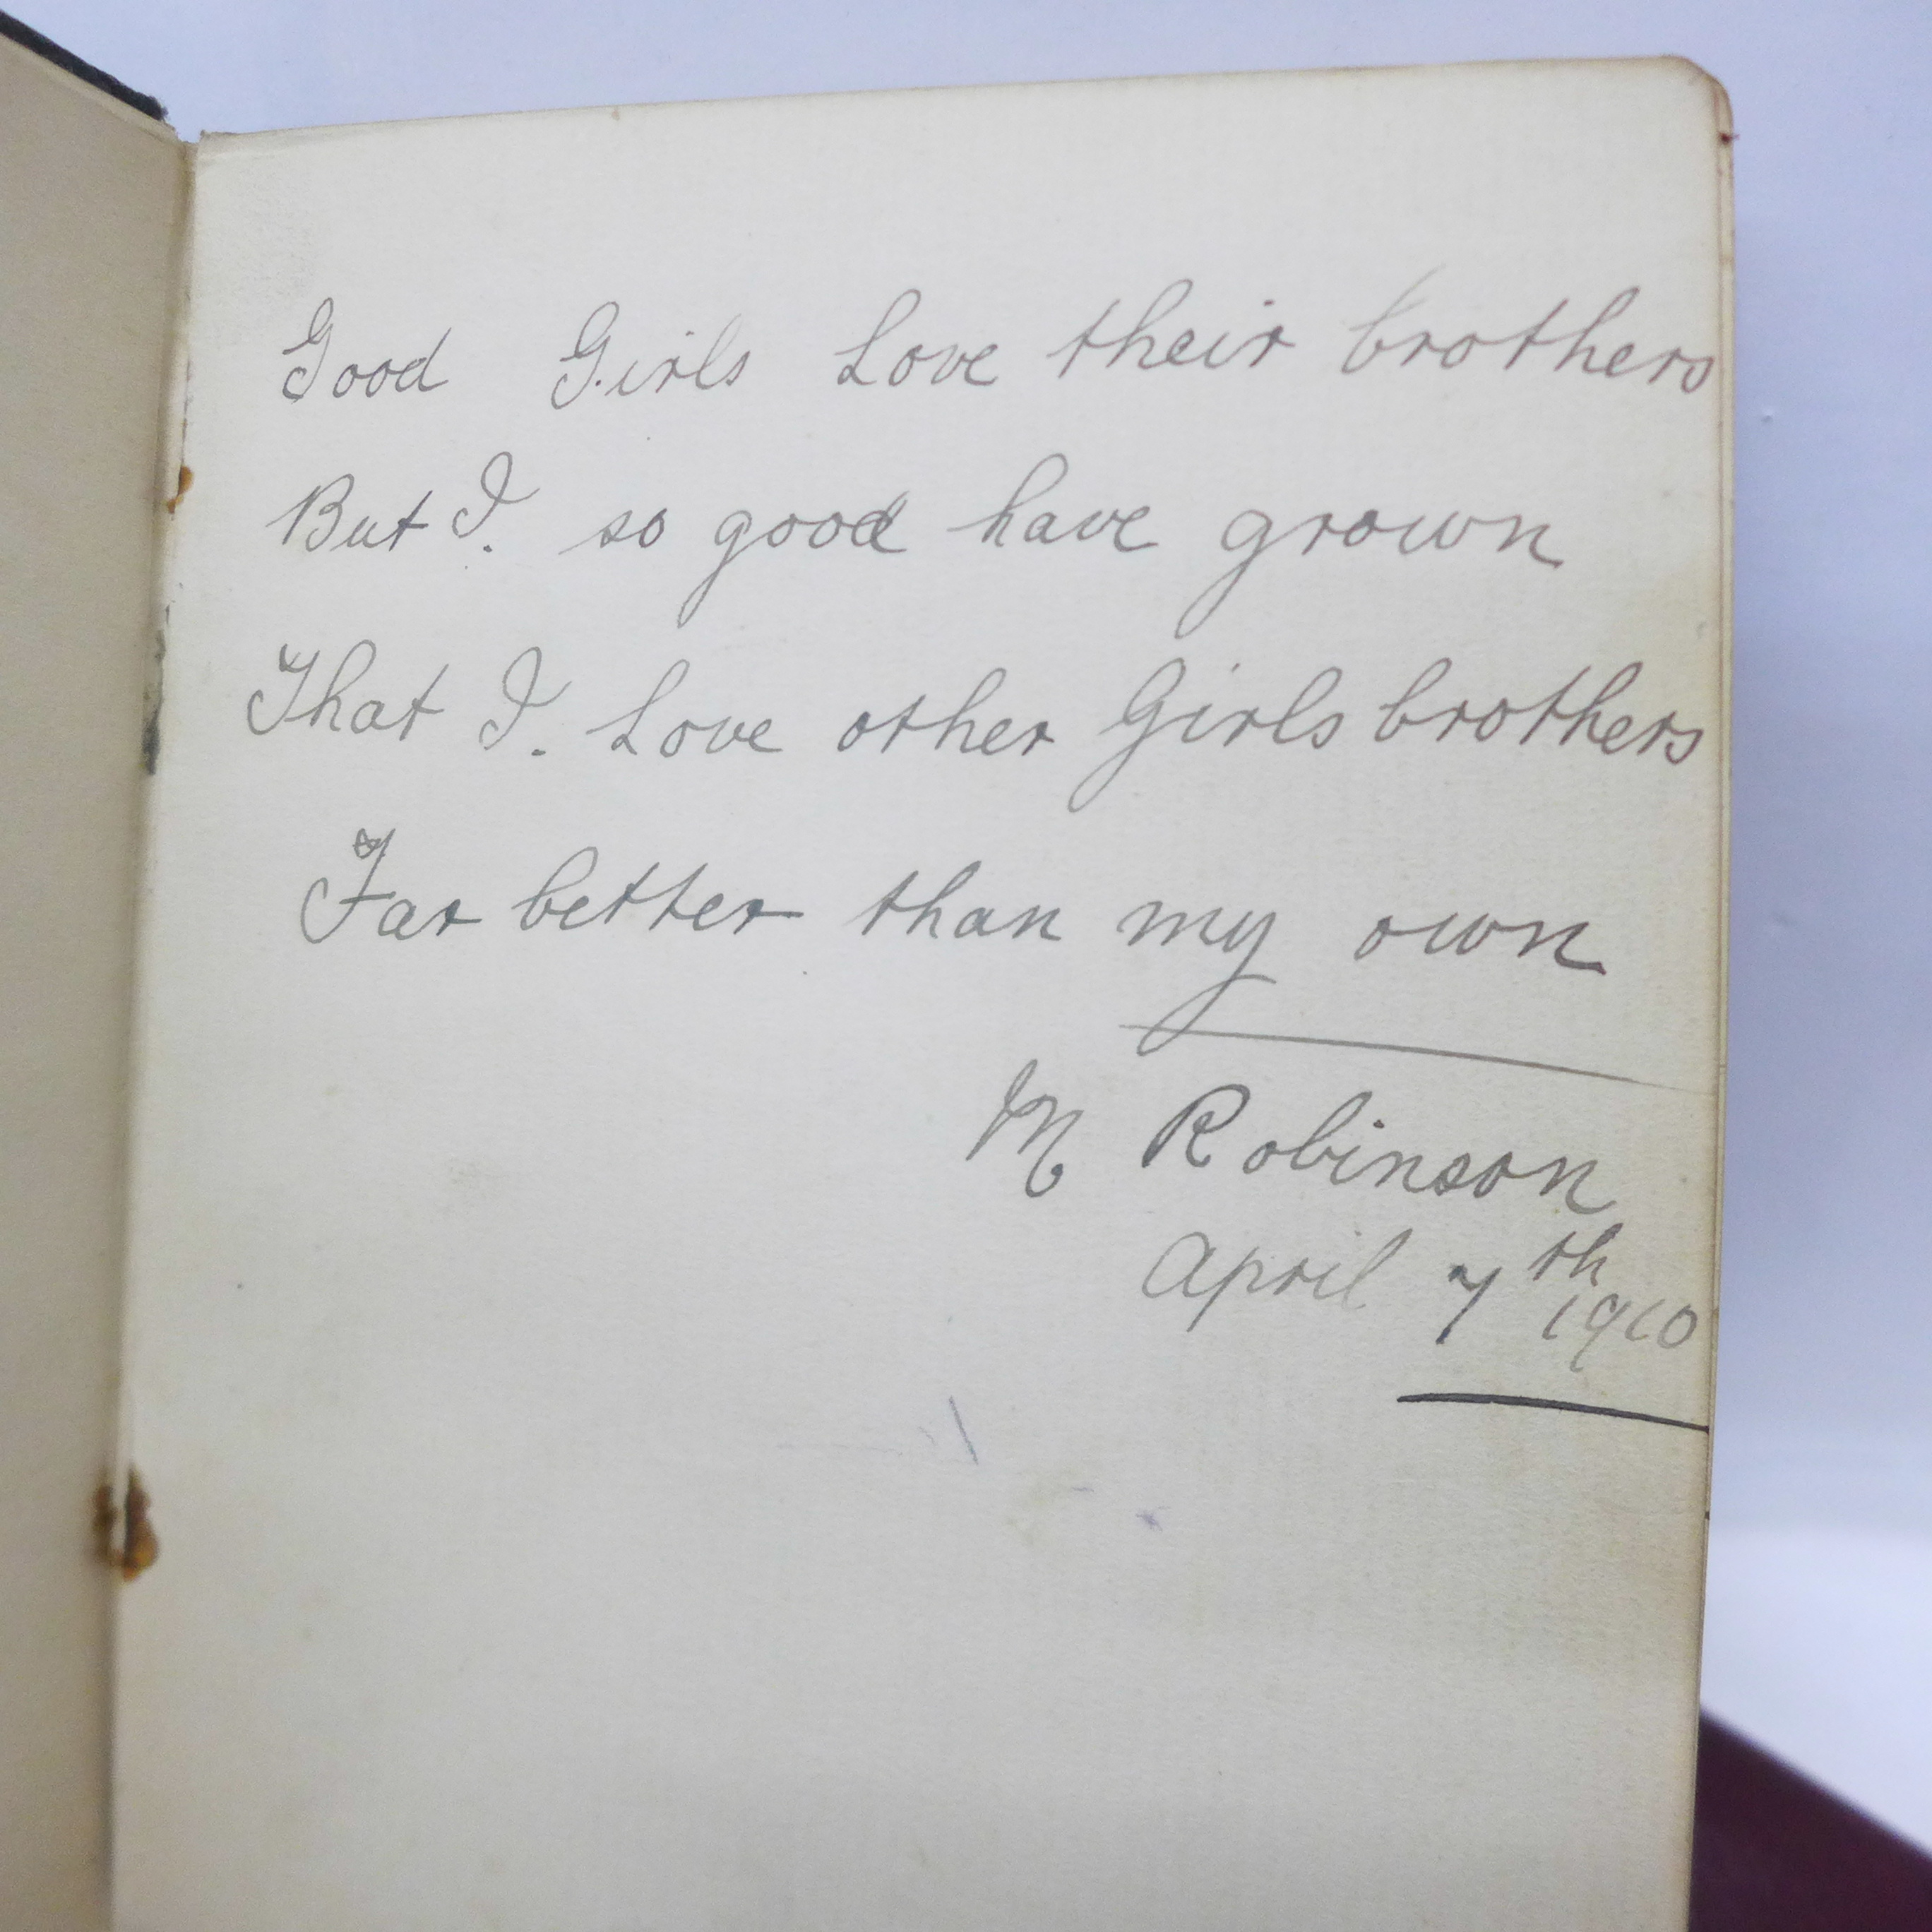 Good Girls Love their brothers
But I. so good have grown
That I. Love other Girls brothers
Far better than my own
M Robinson
April 7th 1910